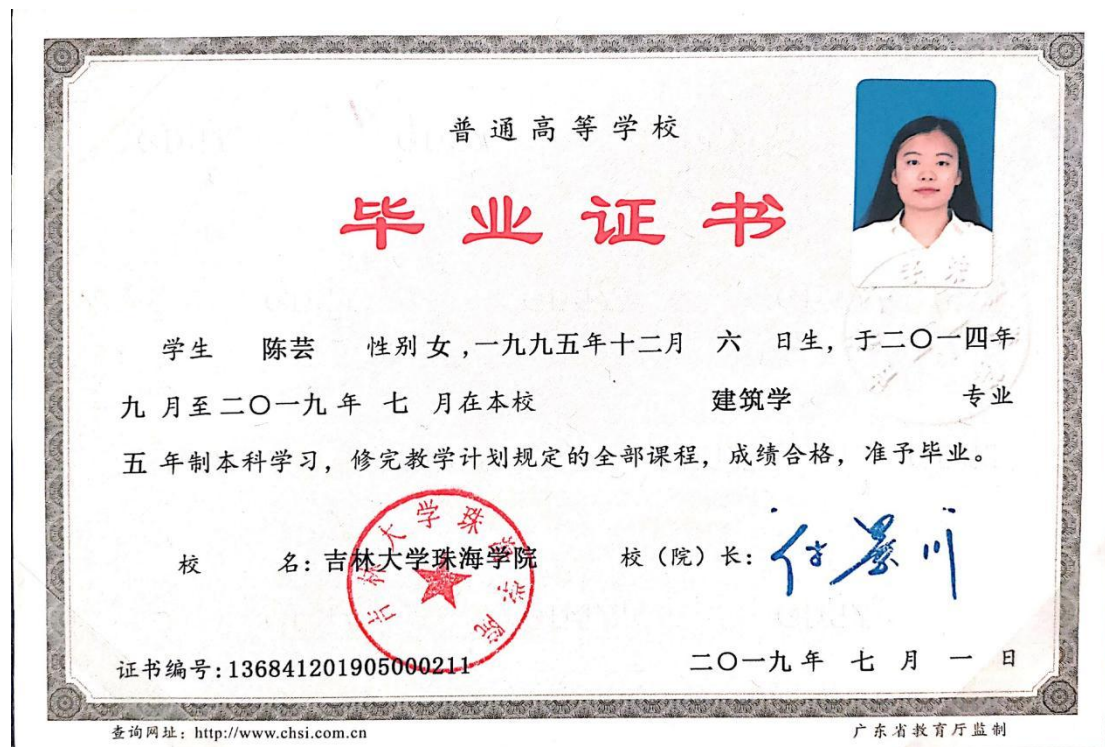 普通高等学校
毕业证书
学生 陈芸 性别 女 ,一九九五年十二月 六 日生，于二〇一四年
九 月至二〇一九 年 七 月在本校 建筑学 专业
五 年制本科学习，修完教学计划规定的全部课程，成绩合格，准予毕业。
校 名：吉林大学珠海学院 校（院）长：付景川
吉林大学珠海学院
证书编号：136841201905000211 二〇一九 年 七 月 一 日
查询网址：http://www.chsi.com.cn 广东省教育厅监制